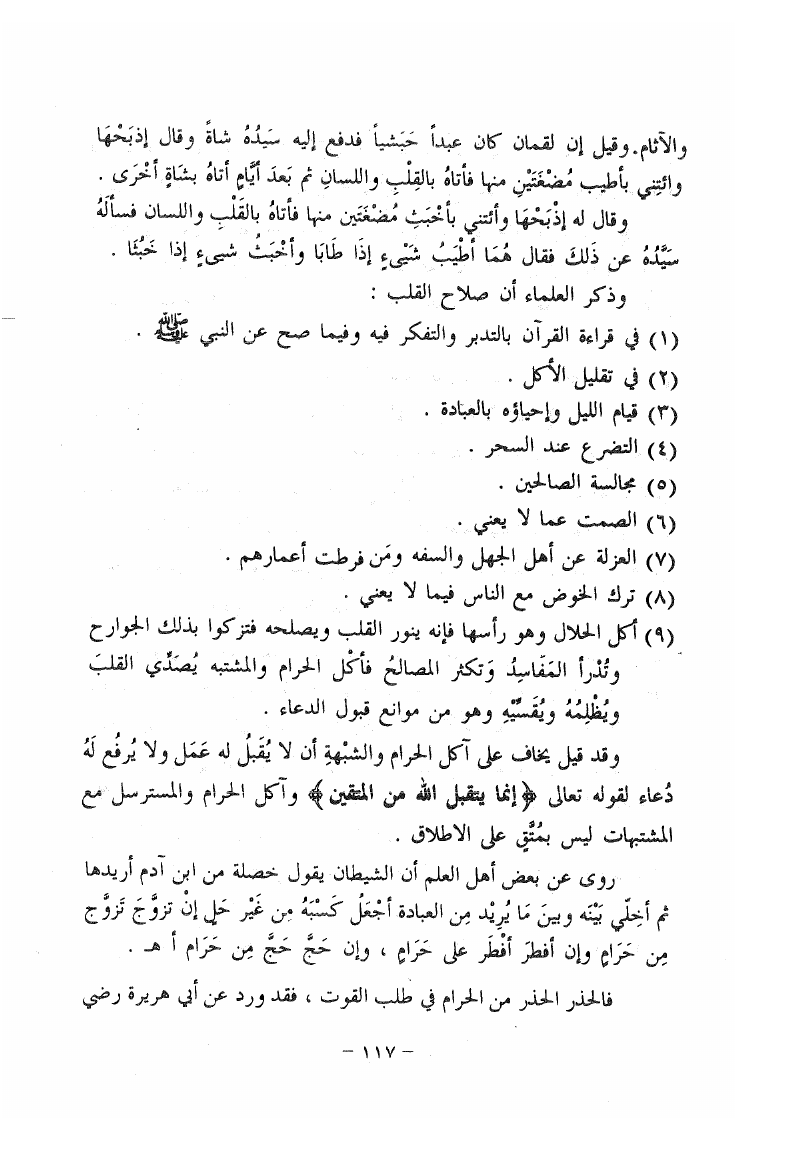 والآثام. وقيل إن لقمان كان عبداً حَبَشياً فدفع إليه سَيّدُهُ شاةً وقال إذبَحْهَا
وائتِني بأطيب مُضْغَتَيْنِ منها فأتاهُ بالقِلْبِ واللسانِ ثم بَعدَ أيَّامٍ أتاهُ بشَاةٍ أُخْرَى .
وقال له إذْبَحْهَا وأئتني بأخْبَثِ مُضْغَتَين منها فأتاهُ بالقَلْبِ واللسان فسألَهُ
سَيَّدُهُ عن ذَلكَ فقال هُمَا أطْيَبُ شَيْىءٍ إذَا طَابَا وأخْبَثُ شيىءٍ إذا خَبُثَا .
وذكر العلماء أن صلاح القلب :
(١) في قراءة القرآن بالتدبر والتفكر فيه وفيما صح عن النبي ﷺ .
(٢) في تقليل الأكل .
(٣) قيام الليل وإحياؤه بالعبادة .
(٤) التضرع عند السحر .
(٥) مجالسة الصالحين .
(٦) الصمت عما لا يعني .
(٧) العزلة عن أهل الجهل والسفه ومَن فرطت أعمارهم .
(٨) ترك الخوض مع الناس فيما لا يعني .
(٩) أكل الحلال وهو رأسها فإنه ينور القلب ويصلحه فتزكوا بذلك الجوارح
وتُدْرأ المَفَاسِدُ وَتكثر المصالحُ فأكْل الحرام والمشتبه يُصَدِّي القلبَ
ويُظْلِمُهُ ويُقَسِّيْهِ وهو من موانع قبول الدعاء .
وقد قيل يخاف على آكل الحرام والشبْهةِ أن لا يُقبَلُ له عَمَل ولا يُرفَع لَهُ
دُعاء لقوله تعالى ﴿ إنما يتقبل الله من المتقين ﴾ وآكل الحرام والمسترسل مع
المشتبهات ليس بمُتَّقٍ على الاطلاق .
روى عن بعض أهل العلم أن الشيطان يقول خصلة من ابن آدم أريدها
ثم أخلّي بَيْنَه وبينَ مَا يُرِيْد مِن العبادة أجْعَلُ كَسْبَهُ مِن غَيْر حَلٍ إنْ تزوَّجَ تَزوَّج
مِن حَرَامٍ وإن أفطرَ أفْطَر على حَرَامٍ ، وإن حَجَّ حَجَّ مِن حَرَام أ هـ .
فالحذر الحذر من الحرام في طلب القوت ، فقد ورد عن أبي هريرة رضي
– ١١٧ –